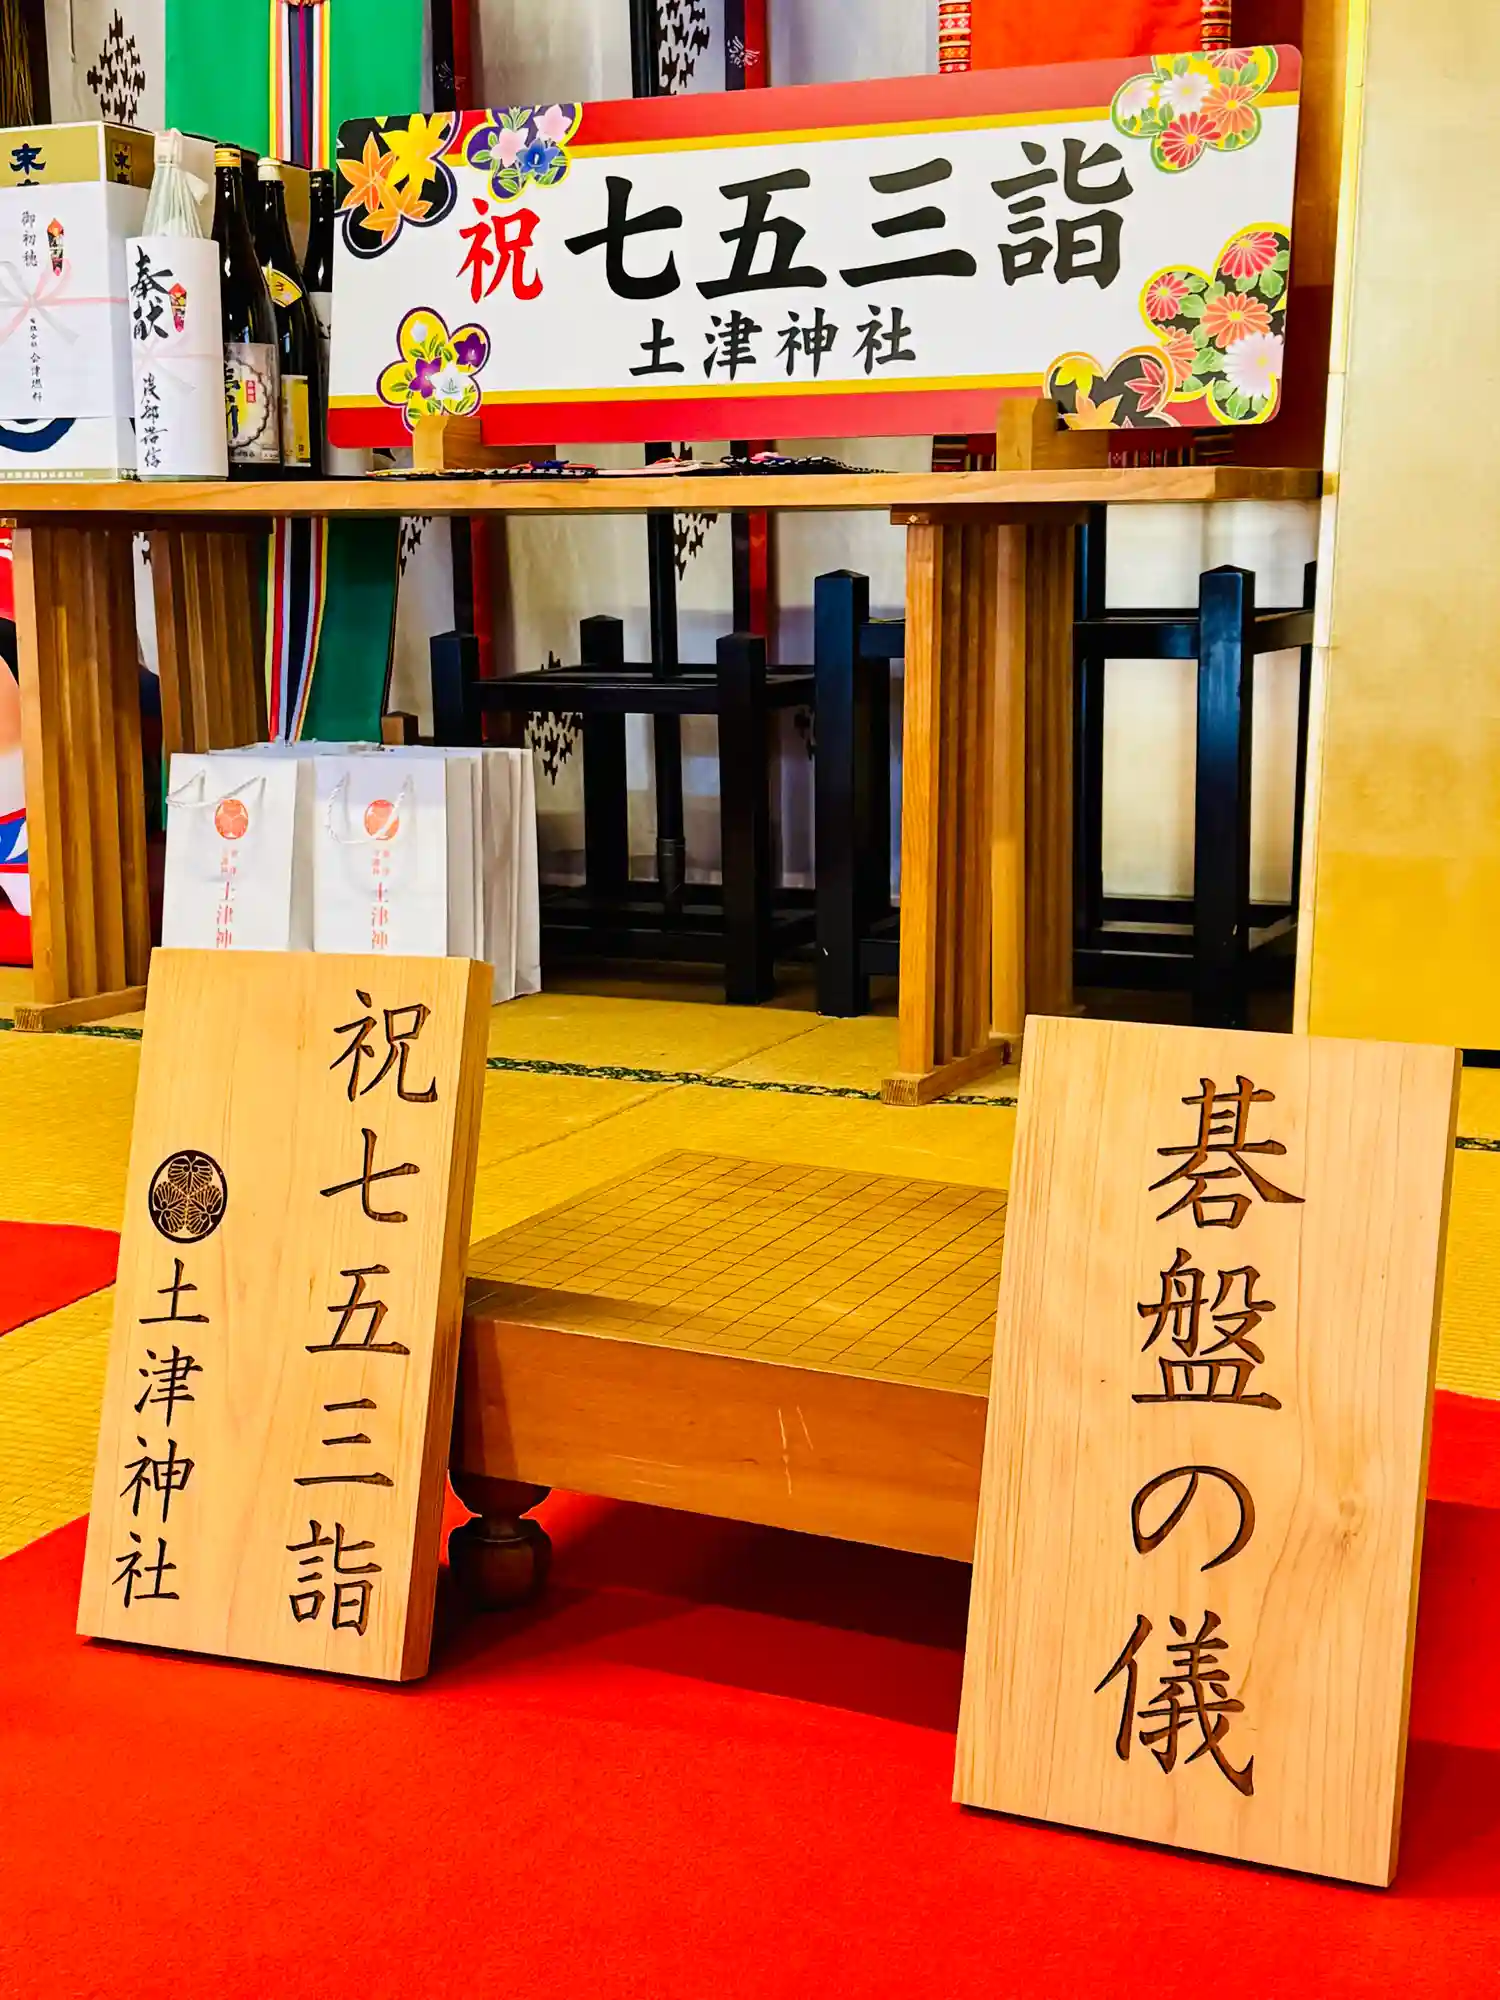 祝 七五三詣
土津神社
御初穂
奉献
末
土津神
土津神
祝七五三詣
土津神社
碁盤の儀